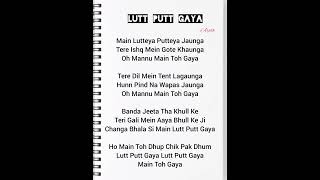 LUTT PUTT GAYA
Main Lutteya Putteya Jaunga
Tere Ishq Mein Gote Khaunga
Oh Mannu Main Toh Gaya
Tere Dil Mein Tent Lagaunga
Hunn Pind Na Wapas Jaunga
Oh Mannu Main Toh Gaya
Banda Jeeta Tha Khull Ke
Teri Gali Mein Aaya Bhull Ke Ji
Changa Bhala Si Main Lutt Putt Gaya
Ho Main Toh Dhup Chik Pak Dhum
Lutt Putt Gaya Lutt Putt Gaya
Main Toh Gaya